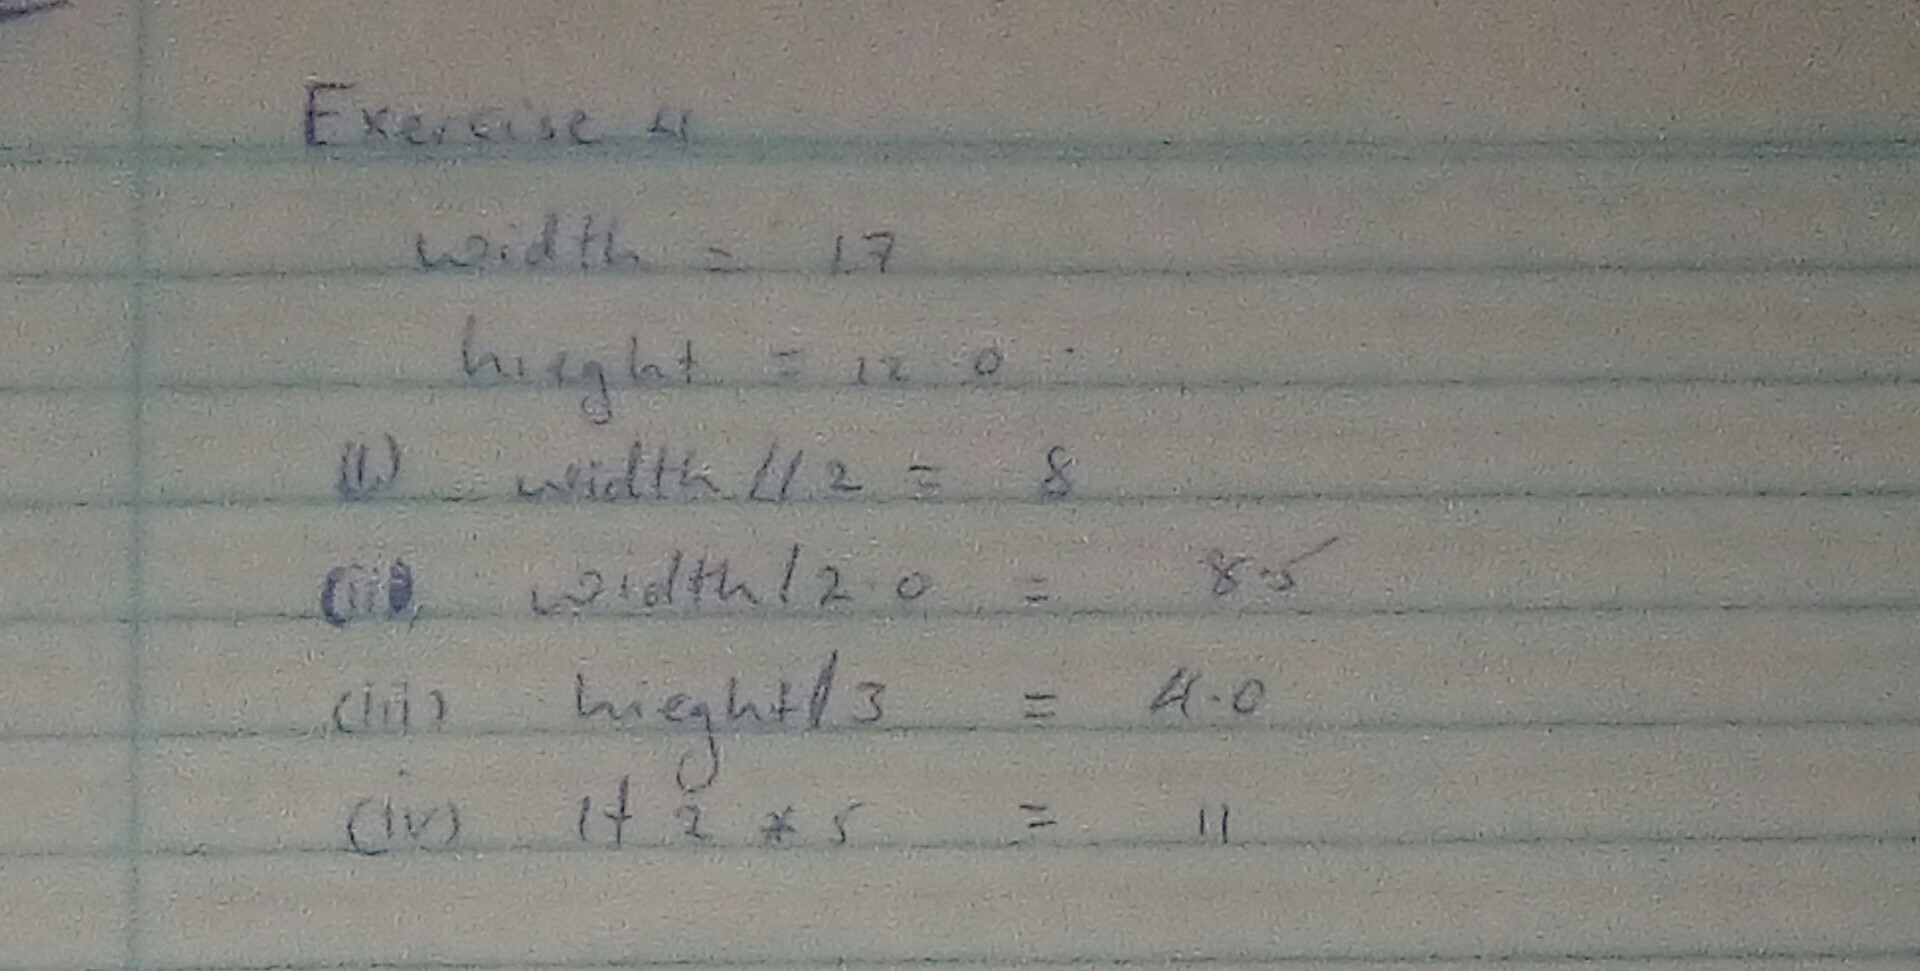 Exercise 4
width = 17
hieght = 12.0
(i) width // 2 = 8
(ii) width / 2.0 = 8.5
(iii) hieght / 3 = 4.0
(iv) 1 + 2 * 5 = 11